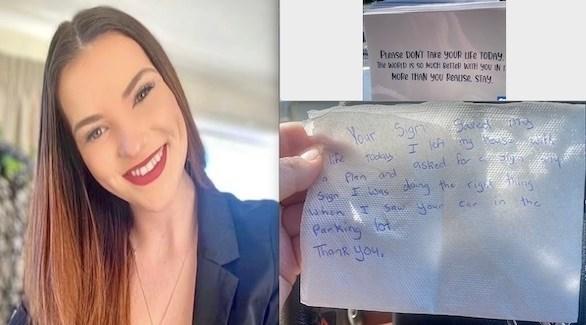 PLEASE DON'T TAKE YOUR LIFE TODAY.
THE WORLD IS SO MUCH BETTER WITH YOU IN I
MORE THAN YOU REALISE. STAY.
Your Sign Saved my
life today I left my house with
a plan and asked for a sign any
sign I was doing the right thing
when I saw your car in the
Parking lot
Thank you.